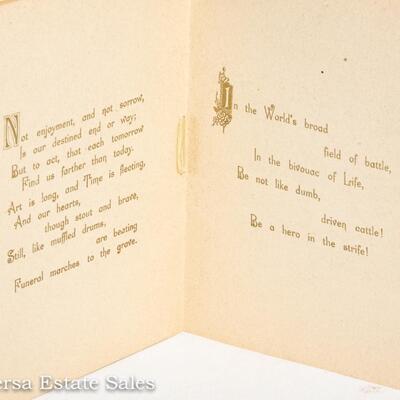 Not enjoyment, and not sorrow,
Is our destined end or way;
But to act, that each tomorrow
Find us farther than today.
Art is long, and Time is fleeting,
And our hearts,
though stout and brave,
Still, like muffled drums,
are beating
Funeral marches to the grave.
In the World's broad
field of battle,
In the bivouac of Life,
Be not like dumb,
driven cattle!
Be a hero in the strife!
ersa Estate Sales